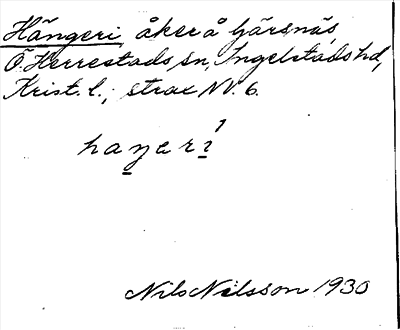 Hängeri, åker å Gärsnäs,
Ö. Herrestads sn, Ingelstads hd,
Krist. l.; strax NV. 6.
haŋeri̱¹
Nils Nilsson 1930